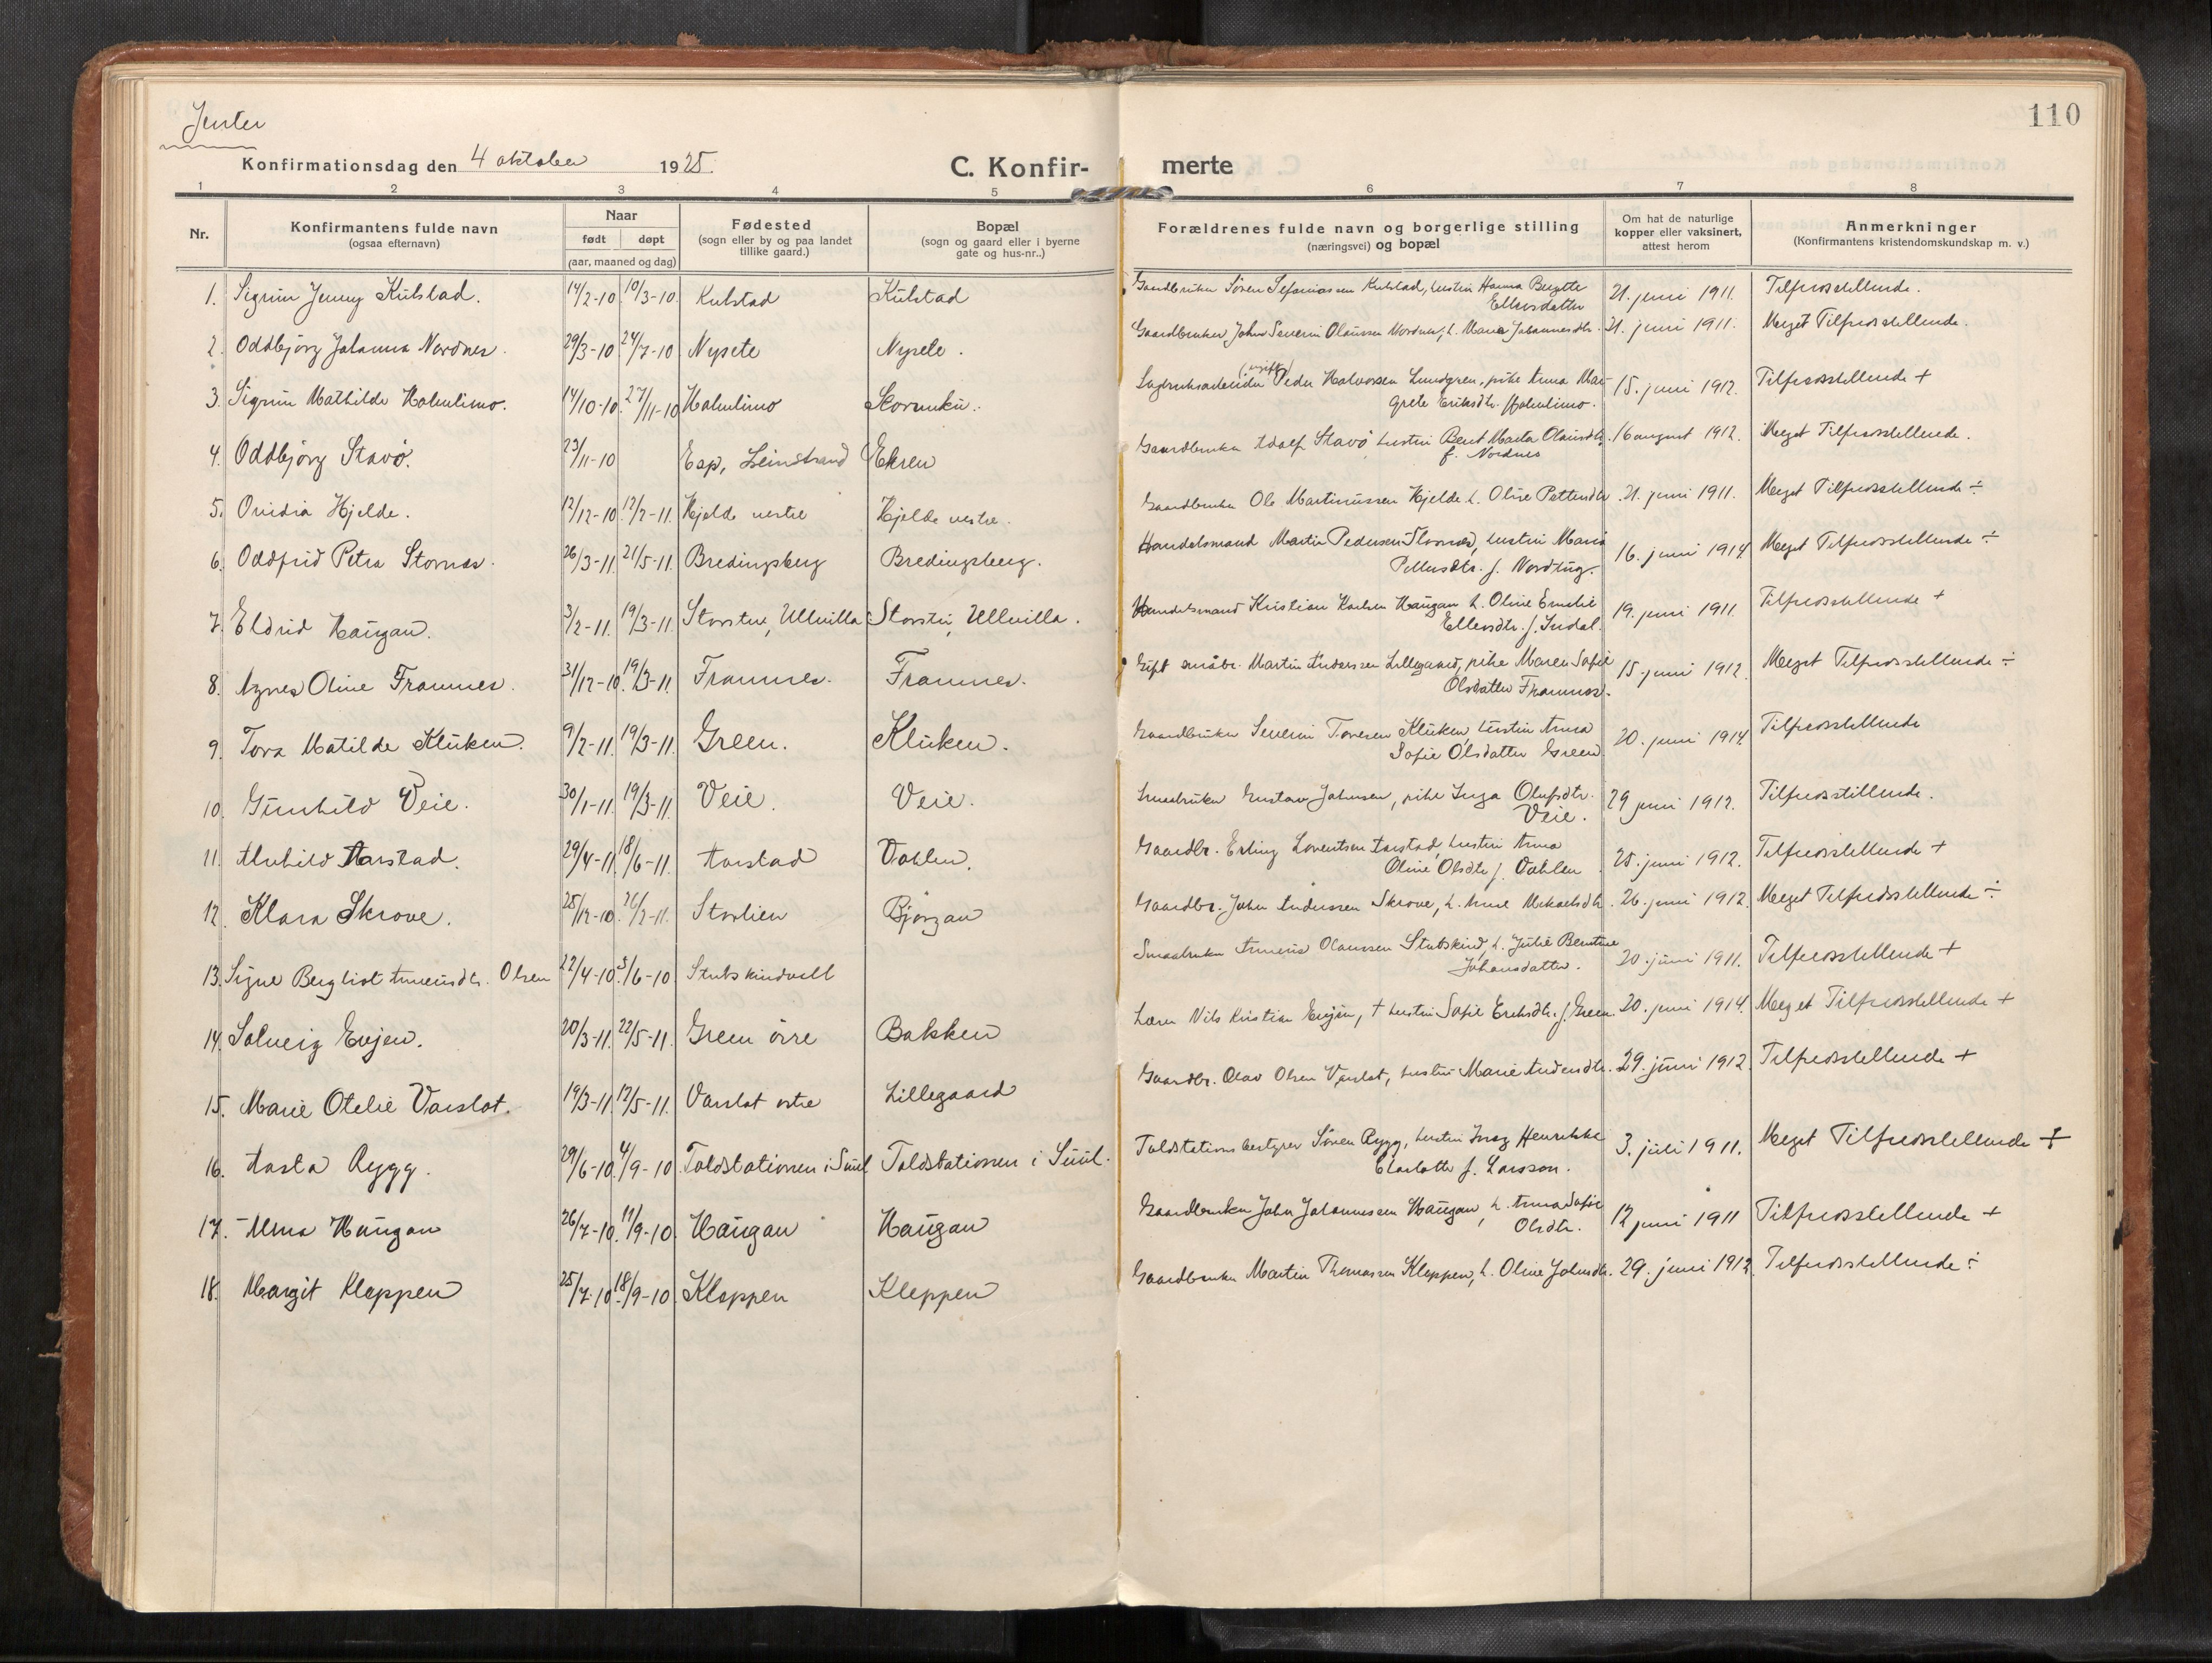 110
Jenter
Konfirmationsdag den 4 oktober 1925.
C. Konfir- merte
1 2 3 4 5 6 7 8
Nr.
Konfirmantens fulde navn
(ogsaa efternavn)
Naar
født døpt
(aar, maaned og dag)
Fødested
(sogn eller by og paa landet
tillike gaard.)
Bopæl
(sogn og gaard eller i byerne
gate og hus-nr..)
Forældrenes fulde navn og borgerlige stilling
(næringsvei) og bopæl
Om hat de naturlige
kopper eller vaksinert,
attest herom
Anmerkninger
(Konfirmantens kristendomskundskap m. v.)
1. Sigrun Jenny Kulstad. 14/2-10. 10/3-10. Kulstad Kulstad Gaardbruker Søren Kulstad, hustru Hanna Bergitte 21. juni 1911. Tilfredsstillende.
Ellensdatter
2. Oddbjørg Johanna Nordnes. 29/3-10 24/7-10 Nysete Nysete. Gaardbruker John Severin Olaussen Nordnes, h. Marie Johannesdtr. 21. juni 1911. Meget Tilfredsstillende.
(ugift)
3. Sigrun Mathilde Holmlimo. 14/10-10. 27/11-10 Holmlimo Peder Halvorsen Lundgren, pike Anna Mar- 15. juni 1912. Tilfredsstillende +
grete Eriksdtr. Holmlimo.
4. Oddbjørg Stavø. 23/11-10 Esp, Leinstrand Ekren Gaardbruker Adolf Stavø, hustru Berit Marta Olausdtr. 16 august 1912. Meget Tilfredsstillende.
f. Nordnes
5. Ovidia Hjelde. 12/12-10. 12/2-11. Hjelde vestre Hjelde vestre. Gaardbruker Ole Martinussen Hjelde h. Oline Pettersdtr. 21. juni 1911. Meget Tilfredsstillende ÷
6. Oddfrid Petra Stornes. 26/3-11. 21/5-11. Bredingsberg Bredingsberg. Handelsmand Martin Pedersen Stornes, hustru Maria 16. juni 1914 Meget Tilfredsstillende ÷
Pettersdtr. f. Nordtug.
7. Eldrid Haugan. 3/2-11. 19/3-11. Storstu, Ullvilla Storstu, Ullvilla. Handelsmand Kristian Karlsen Haugan h. Oline Emelie 19. juni 1911. Tilfredsstillende +
Ellensdtr. f. Indal.
8. Agnes Oline Framnes. 31/12-10. 19/3-11. Framnes. Framnes. Gift småbr. Martin Andersen Lillegaard, pike Maren Sofie 15. juni 1912. Meget Tilfredsstillende ÷
Olsdatter Framnes.
9. Tora Matilde Kluken. 9/2-11. 19/3-11. Green. Kluken. Gaardbruker Severin Toresen Kluken, hustru Anna 20. juni 1914. Tilfredsstillende
Sofie Olsdatter Green
10. Gunhild Veie. 30/1-11. 19/3-11. Veie. Veie. Gustav Johnsen, pike Inga Olufsdtr. 29 juni 1912. Tilfredsstillende.
Veie.
11. Alvhild Aarstad. 29/4-11. 18/6-11. Aarstad Dahlen. Gaardbr. Erling Lorentsen Aarstad, hustru Anna 25. juni 1912. Tilfredsstillende +
Oline Olsdtr. f. Dahlen.
12. Klara Skrove. 25/12-10. 26/2-11. Storlien Bjørgan Gaardbr. John Andersen Skrove, h. Anne Mikaelsdtr. 26. juni 1912. Meget Tilfredsstillende ÷
13. Signe Bergliot Arneusdtr. Olsen 22/4-10. 3/6-10. Stubskindvell Smaabruker Arneus Olaussen Stubskind, h. Julie Berntine 20. juni 1911. Tilfredsstillende +
Johansdatter.
14. Solveig Evjen. 20/3-11. 22/5-11. Green øvre Bakken Lærer Nils Kristian Evjen, + hustru Sofie Eriksdtr. f. Green. 20. juni 1914. Meget Tilfredsstillende +
15. Marie Otelie Varslot. 14/3-11. 12/5-11. Varslot østre Lillegaard Gaardbr. Olav Olsen Varslot, hustru Marie Andersdtr. 29. juni 1912. Tilfredsstillende +
16. Aasta Rygg. 29/6-10. 4/9-10 Toldstationen i Suul Toldstationen i Suul. Toldstationsbestyrer Søren Rygg, hustru Inga Henrikke 3. juli 1911. Meget Tilfredsstillende +
Charlotte f. Larsson.
17. Alma Haugan 26/7-10. 11/9-10. Haugan Haugan Gaardbruker John Johannessen Haugan, h. Anna Sofie 12 juni 1911 Tilfredsstillende +
Olsdtr.
18. Margit Kleppen 25/7-10 18/9-10. Kleppen Kleppen Gaardbruker Martin Thomassen Kleppen, h. Oline Johnsdtr. 29. juni 1912 Tilfredsstillende ÷